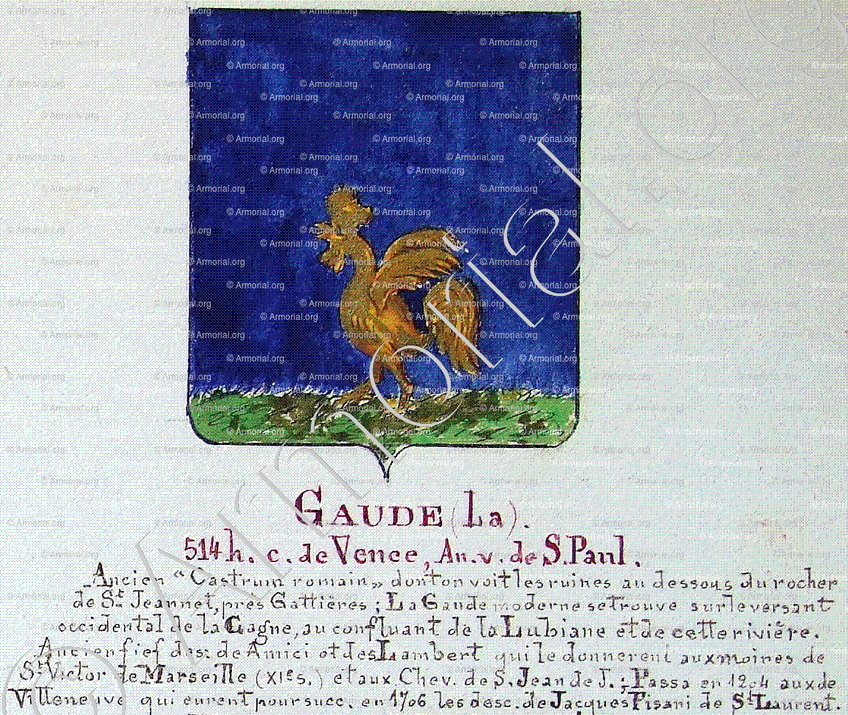 GAUDE (La).
514 h. c. de Vence, An. v. de S. Paul.
Ancien "Castrum romain" dont on voit les ruines au dessous du rocher
de St Jeannet, près Gattières ; La Gaude moderne se trouve sur le versant
occidental de la Cagne, au confluant de la Lubiane et de cette rivière.
Ancien fief des de Amici et des Lambert qui le donnerent aux moines de
St Victor de Marseille (XIe s.) et aux Chev. de S. Jean de J. ; Passa en 12 4 aux de
Villeneuve qui eurent pour succ. en 1706 les desc. de Jacques Pisani de St Laurent.
© Armorial.org